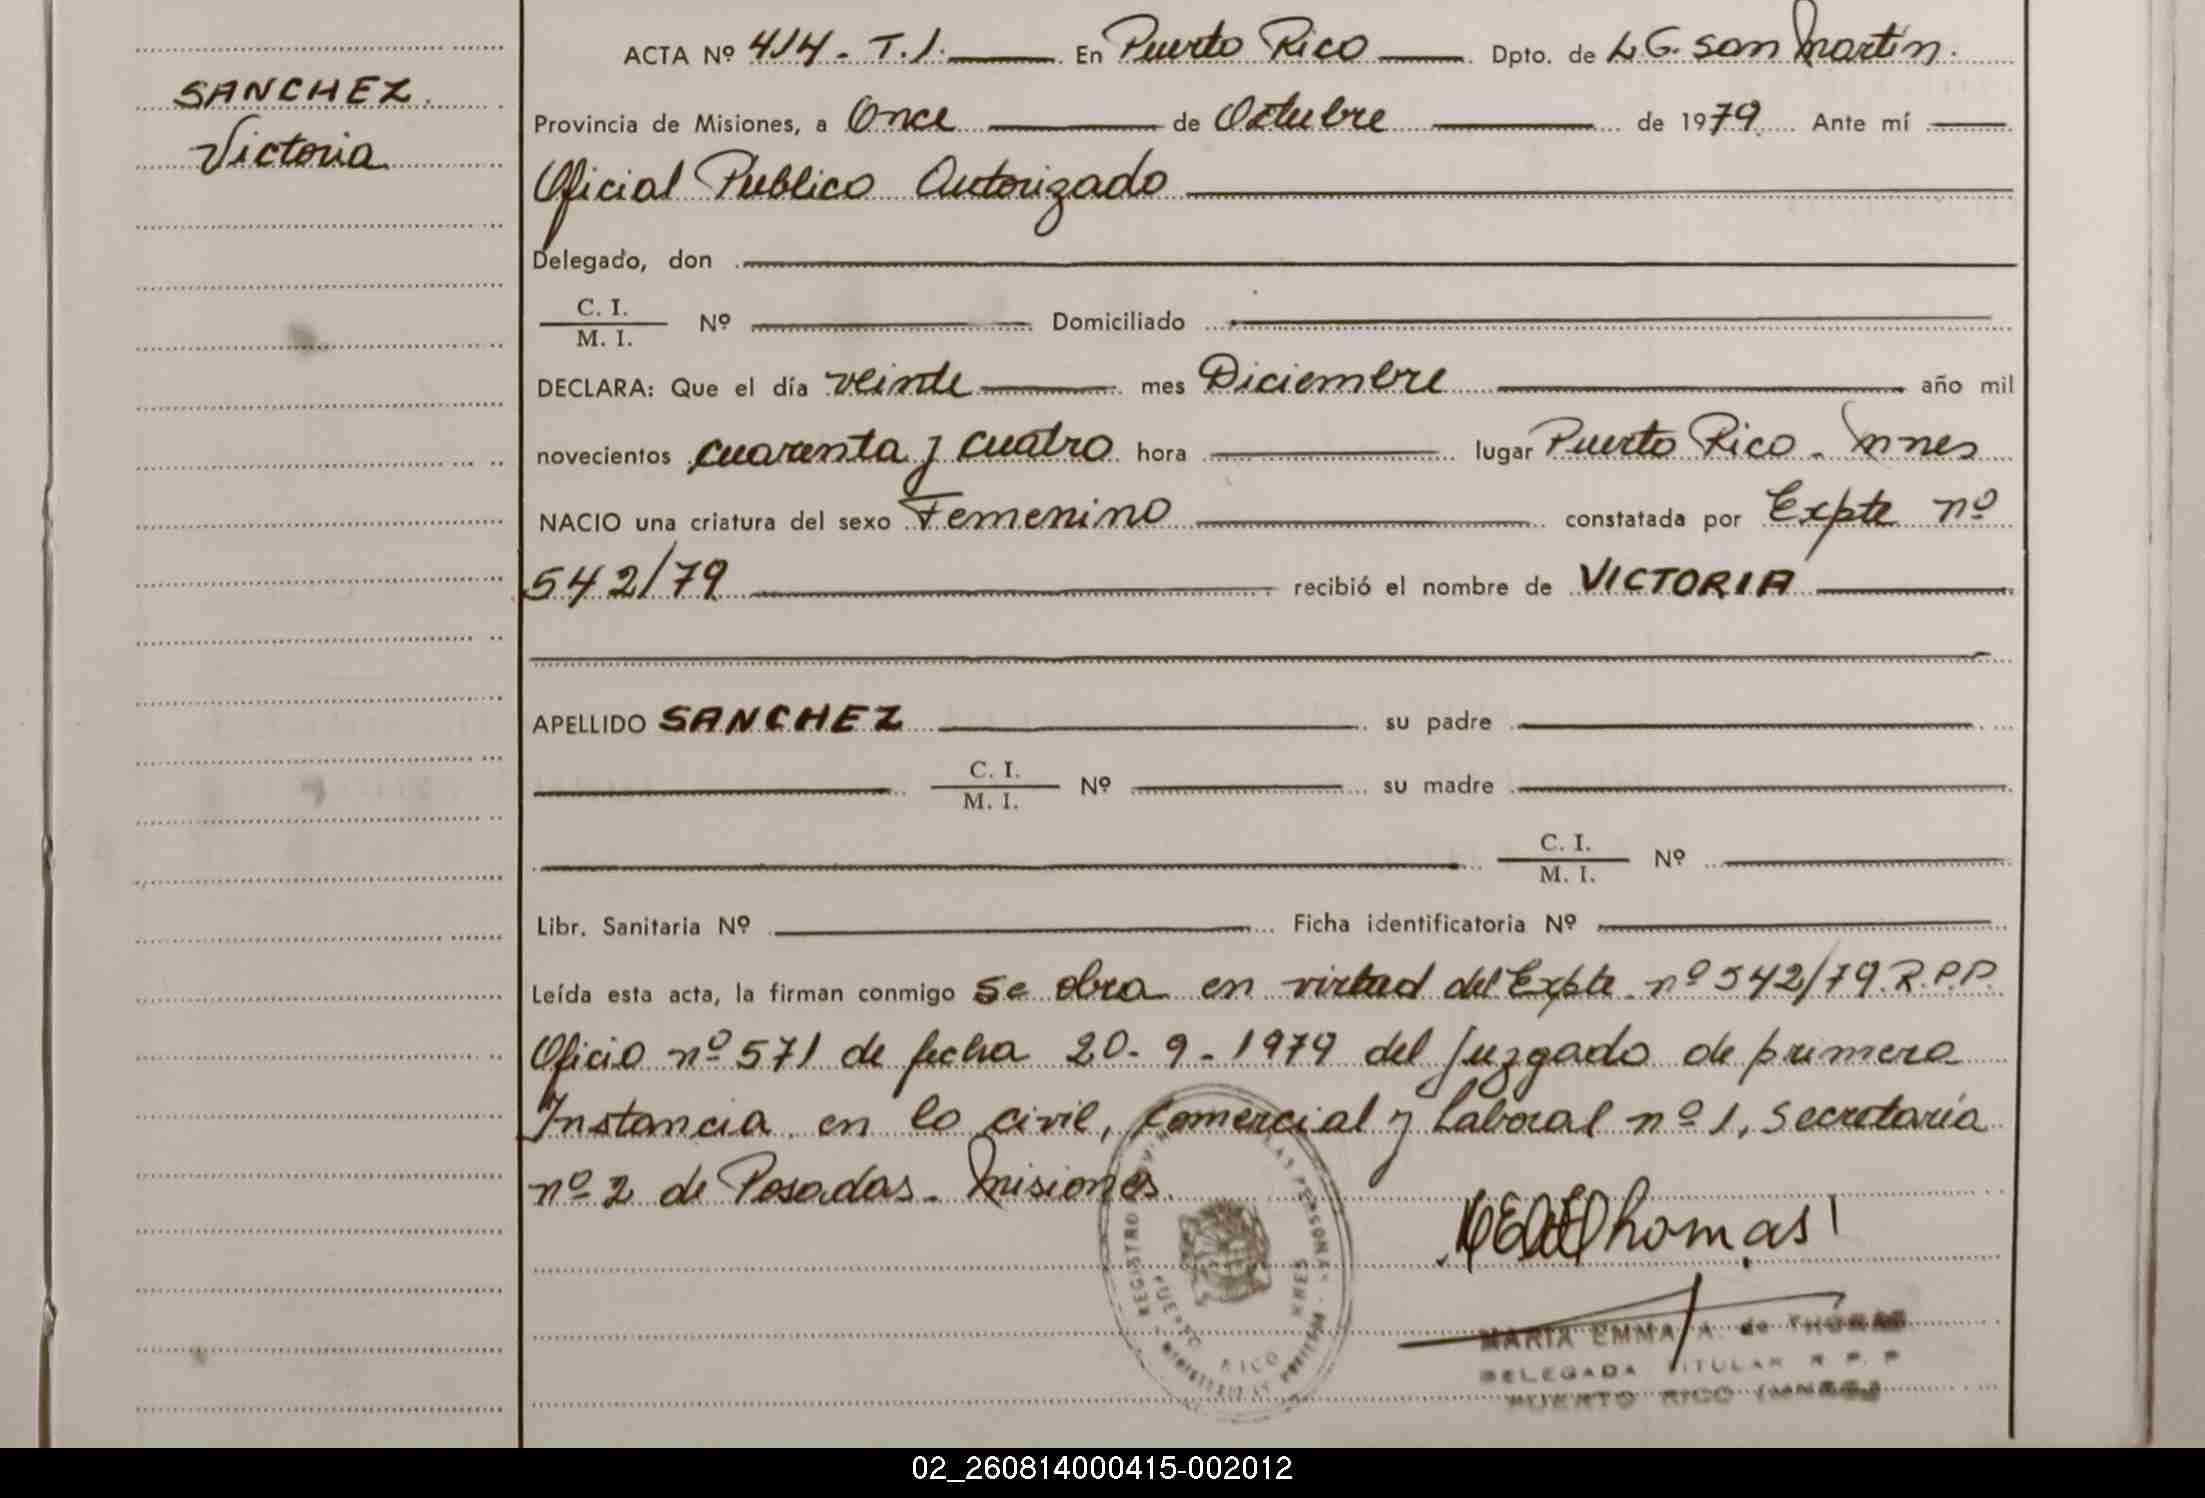 SANCHEZ
Victoria
ACTA Nº 414 - T. 1. En Puerto Rico Dpto. de L. G. San Martin.
Provincia de Misiones, a Once de Octubre de 1979 Ante mí
Oficial Publico Autorizado
Delegado, don
C. I.
M. I. Nº Domiciliado
DECLARA: Que el día veinte mes Diciembre año mil
novecientos cuarenta y cuatro hora lugar Puerto Rico - Mnes
NACIO una criatura del sexo Femenino constatada por Expte nº
542/79 recibió el nombre de VICTORIA
APELLIDO SANCHEZ su padre
C. I.
M. I. Nº su madre
C. I.
M. I. Nº
Libr. Sanitaria Nº Ficha identificatoria Nº
Leída esta acta, la firman conmigo Se obra en virtud del Expte nº 542/79. R.P.P.
Oficio nº 571 de fecha 20-9-1979 del Juzgado de primera
Instancia en lo civil, Comercial y Laboral nº 1, Secretaria
nº 2 de Posadas - Misiones.
REGISTRO PERSONAS
PUERTO RICO MNES
Thomas
MARIA EMMA A. de THOMAS
DELEGADA TITULAR R. P. P
PUERTO RICO (MNES)
02_260814000415-002012